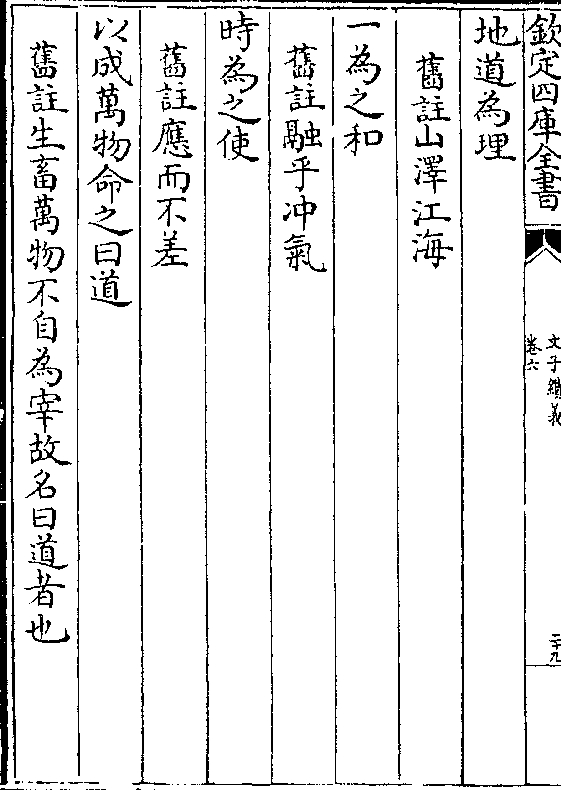 欽定四庫全書
文子纘義
卷六
二十九
地道為理
舊註山澤江海
一為之和
舊註融乎冲氣
時為之使
舊註應而不差
以成萬物命之曰道
舊註生畜萬物不自為宰故名曰道者也